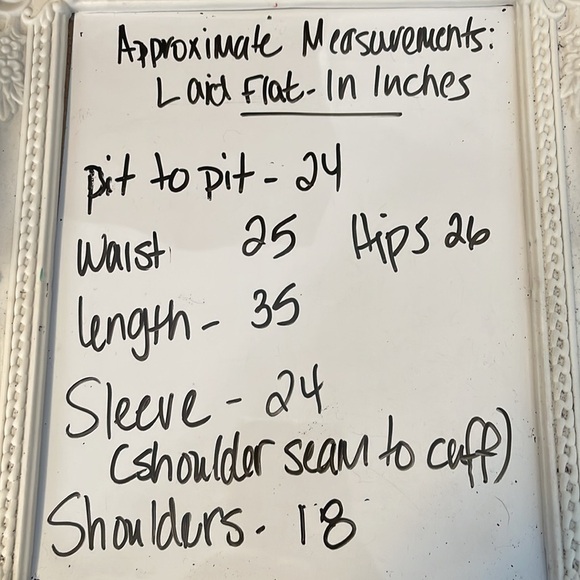 Approximate Measurements:
Laid Flat - In Inches
pit to pit - 24
Waist 25 Hips 26
length - 35
Sleeve - 24
(shoulder seam to cuff)
Shoulders - 18